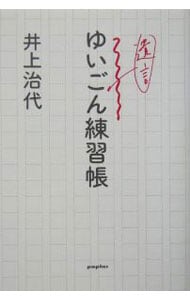 遺言
ゆいごん練習帳
井上治代